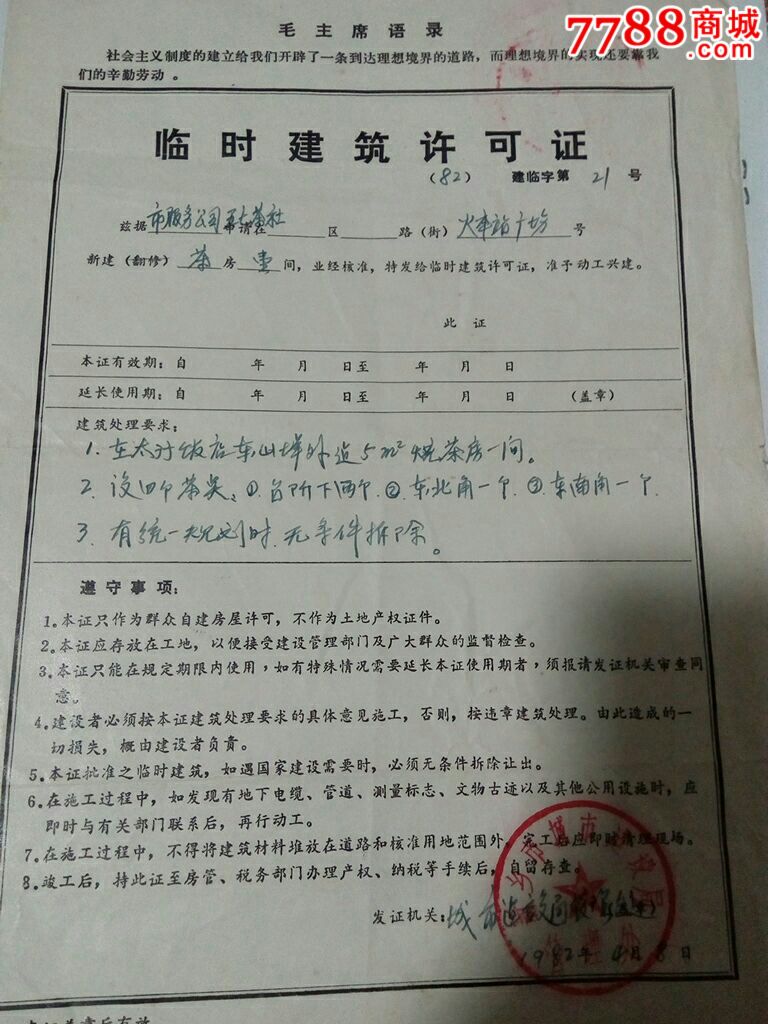 7788商城
毛主席语录
社会主义制度的建立给我们开辟了一条到达理想境界的道路，而理想境界的实现还要靠我
们的辛勤劳动。
临时建筑许可证
（82） 建临字第 21 号
兹据市服务公司 茶社申请在 区 路（街）火车站广场 号
新建（翻修）茶房壹间，业经核准，特发给临时建筑许可证，准予动工兴建。
此证
本证有效期：自 年 月 日至 年 月 日
延长使用期：自 年 月 日至 年 月 日 （盖章）
建筑处理要求：
1. 在 饭店东山 外 5m² 茶房一间。
2. 设四个茶 ：① 下两个 ②东北角一个 ③东南角一个
3. 有统一规划时，无条件拆除。
遵守事项：
1。本证只作为群众自建房屋许可，不作为土地产权证件。
2。本证应存放在工地，以便接受建设管理部门及广大群众的监督检查。
3。本证只能在规定期限内使用，如有特殊情况需要延长本证使用期者，须报请发证机关审查同
意。
4。建设者必须按本证建筑处理要求的具体意见施工，否则，按违章建筑处理。由此造成的一
切损失，概由建设者负责。
5。本证批准之临时建筑，如遇国家建设需要时，必须无条件拆除让出。
6。在施工过程中，如发现有地下电缆、管道、测量标志、文物古迹以及其他公用设施时，应
即时与有关部门联系后，再行动工。
7。在施工过程中，不得将建筑材料堆放在道路和核准用地范围外，完工后应即时清理现场。
8。竣工后，持此证至房管、税务部门办理产权、纳税等手续后，自留存查。
发证机关：城市建设局
1982年4月8日